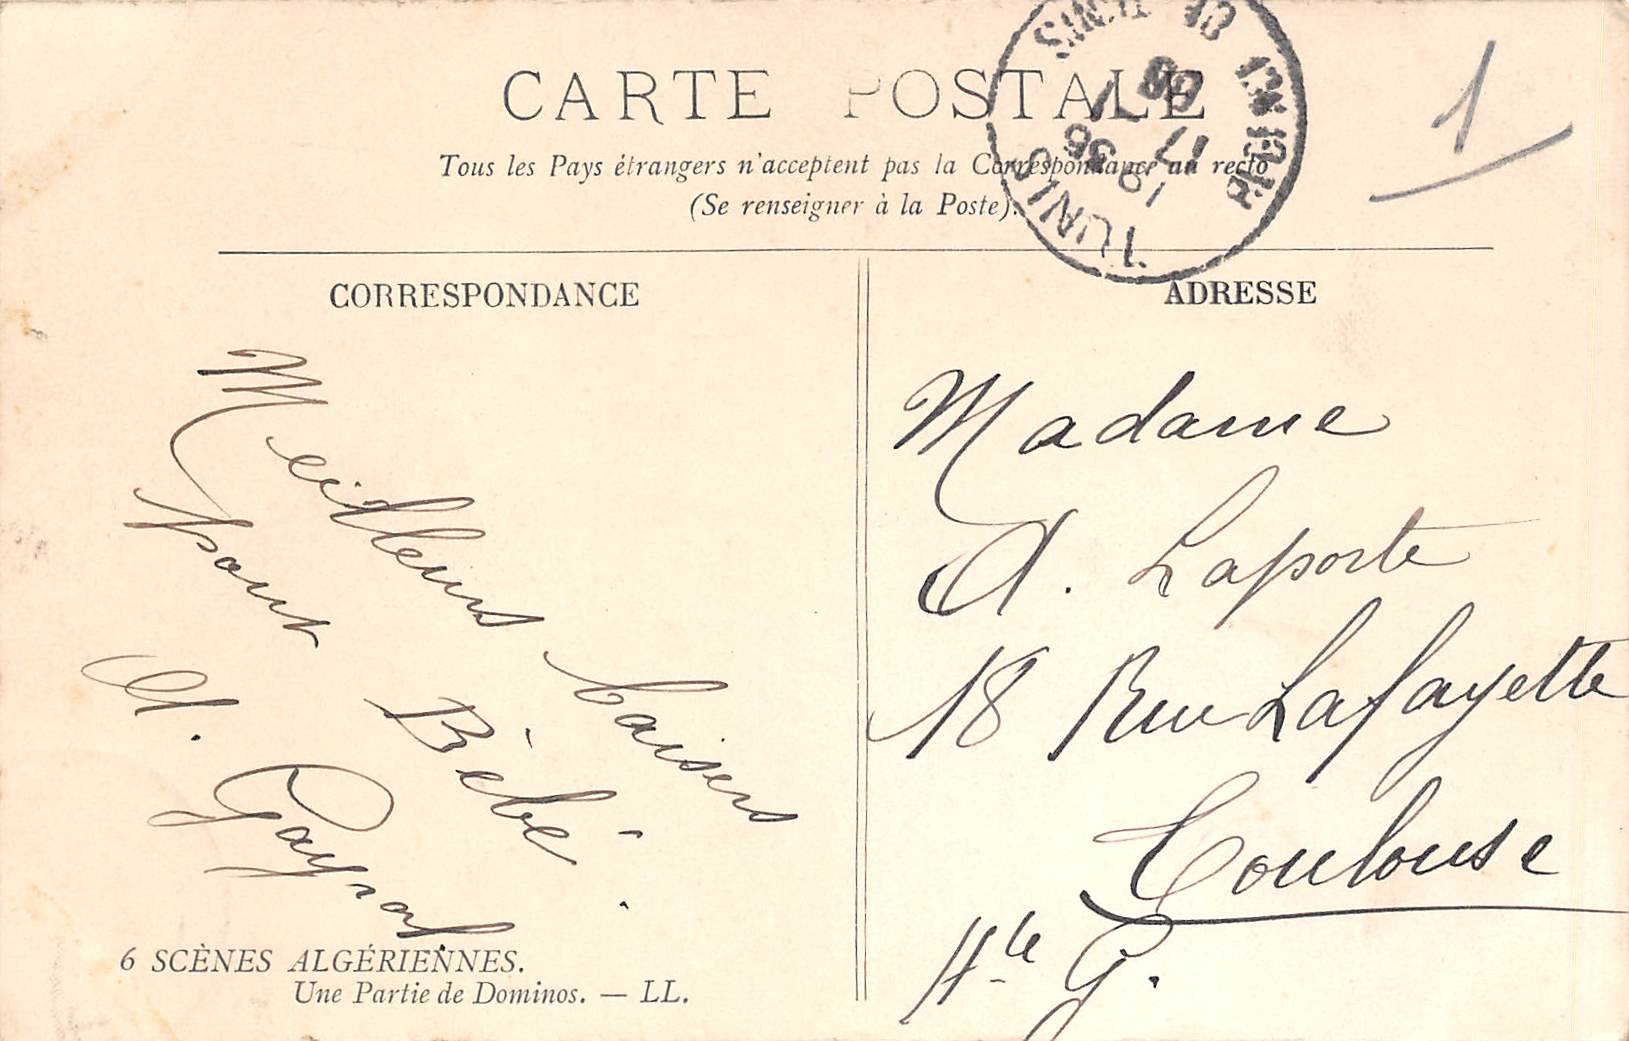 CARTE POSTALE
Tous les Pays étrangers n'acceptent pas la Correspondance au recto
(Se renseigner à la Poste).
TUNIS
19 35
17 1
08
1
CORRESPONDANCE
Meilleurs baisers
pour Bèbé.
A.
6 SCÈNES ALGÉRIENNES.
Une Partie de Dominos. — LL.
ADRESSE
Madame
A. Laporte
18 Rue Lafayette
Toulouse
Hte G.